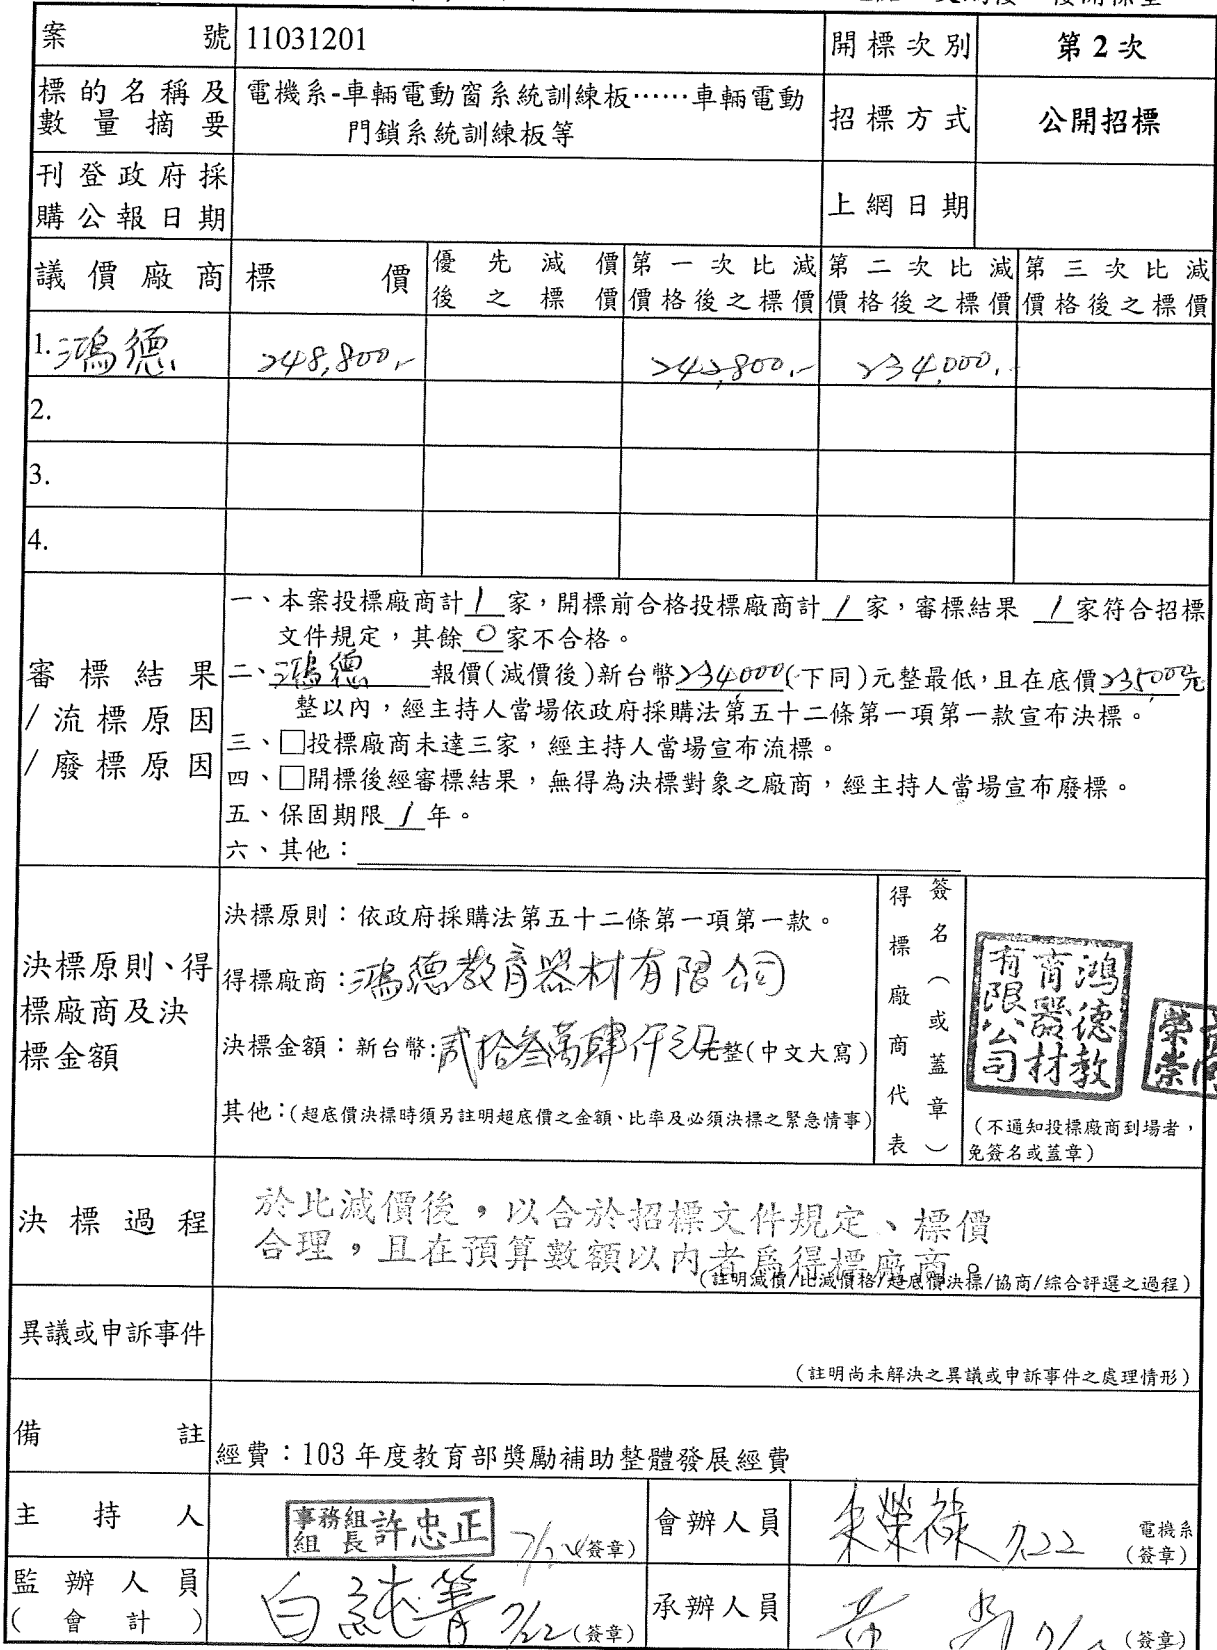 案 號 11031201 開標次別 第2次
標的名稱及數量摘要 電機系-車輛電動窗系統訓練板……車輛電動
門鎖系統訓練板等 招標方式 公開招標
刊登政府採
購公報日期 上網日期
議價廠商 標 價 優先減價 第一次比減 第二次比減 第三次比減
後之標價 價格後之標價 價格後之標價 價格後之標價
1.鴻德 248,800.- 242,800.- 234,000.-
2.
3.
4.
審標結果
/流標原因
/廢標原因
一、本案投標廠商計1家,開標前合格投標廠商計1家,審標結果 1家符合招標
文件規定,其餘0家不合格。
二、鴻德 報價(減價後)新台幣234,000(下同)元整最低,且在底價235,000元
整以內,經主持人當場依政府採購法第五十二條第一項第一款宣布決標。
三、□投標廠商未達三家,經主持人當場宣布流標。
四、□開標後經審標結果,無得為決標對象之廠商,經主持人當場宣布廢標。
五、保固期限1年。
六、其他:
決標原則、得
標廠商及決
標金額
決標原則:依政府採購法第五十二條第一項第一款。
得標廠商:鴻德教育器材有限公司
決標金額:新台幣:貳拾叁萬肆仟元整(中文大寫)
其他:(超底價決標時須另註明超底價之金額、比率及必須決標之緊急情事)
得標廠商代表
簽名(或蓋章)
鴻德教
育器材
有限公司
(不通知投標廠商到場者,
免簽名或蓋章)
決標過程
於比減價後,以合於招標文件規定、標價
合理,且在預算數額以內者為得標廠商。
(註明減價/比減價格/超底價決標/協商/綜合評選之過程)
異議或申訴事件
(註明尚未解決之異議或申訴事件之處理情形)
備 註
經費:103年度教育部獎勵補助整體發展經費
主持人 事務組
組長 許忠正 (簽章) 會辦人員 朱榮祿 7.22 電機系
(簽章)
監辦人員
(會計) 白純菁 7/22 (簽章) 承辦人員 (簽章)